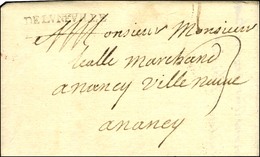 DE LUNEVILLE
A Monsieur Monsieur
marchand
a nancy ville neuve
a nancy